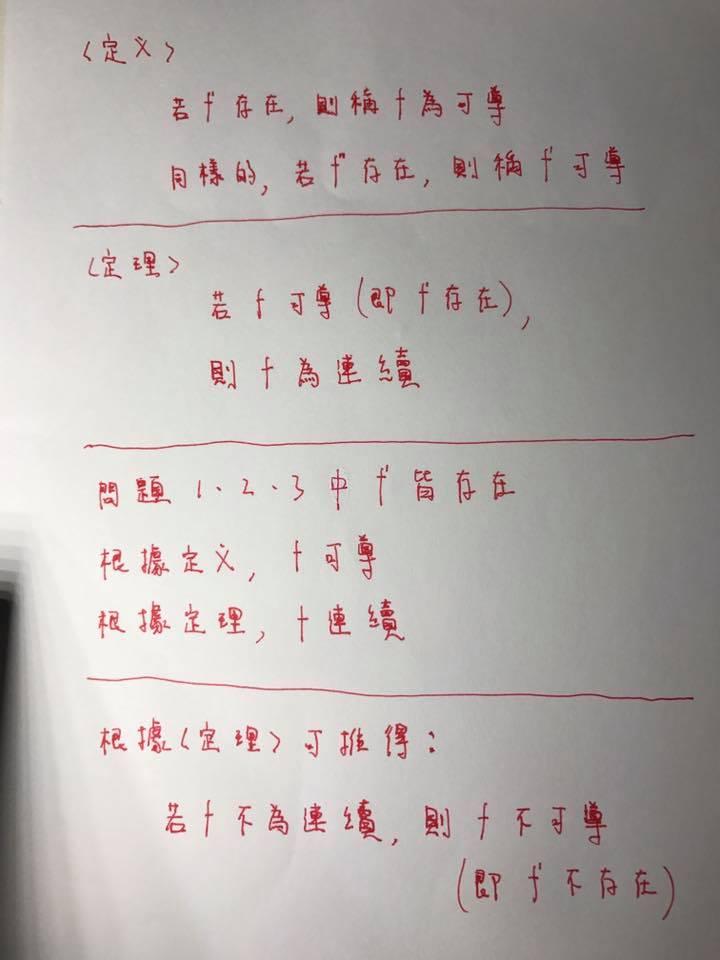 〈定义〉
若 f' 存在, 則稱 f 為可導
同樣的, 若 f" 存在, 則稱 f' 可導
〈定理〉
若 f 可導 (即 f' 存在),
則 f 為連續
問題 1、2、3 中 f' 皆存在
根據定义, f 可導
根據定理, f 連續
根據〈定理〉可推得:
若 f 不為連續, 則 f 不可導
(即 f' 不存在)